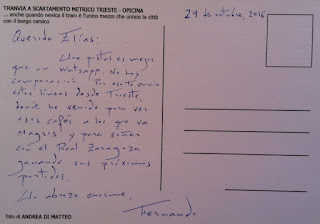 TRANVIA A SCARTAMENTO METRICO TRIESTE - OPICINA
... anche quando nevica il tram è l'unico mezzo che unisce la città
con il borgo carsico
24 de octubre, 2016
Querido Elías:
Una postal es mejor
que un Watsapp. No hay
comparación. Por eso te envío
estas líneas desde Trieste,
donde he venido para ver
esos cafés a los que va
Magris y para soñar
con el Real Zaragoza
ganando sus próximos
partidos.
Un abrazo enorme,
Fernando
foto di ANDREA DI MATTEO